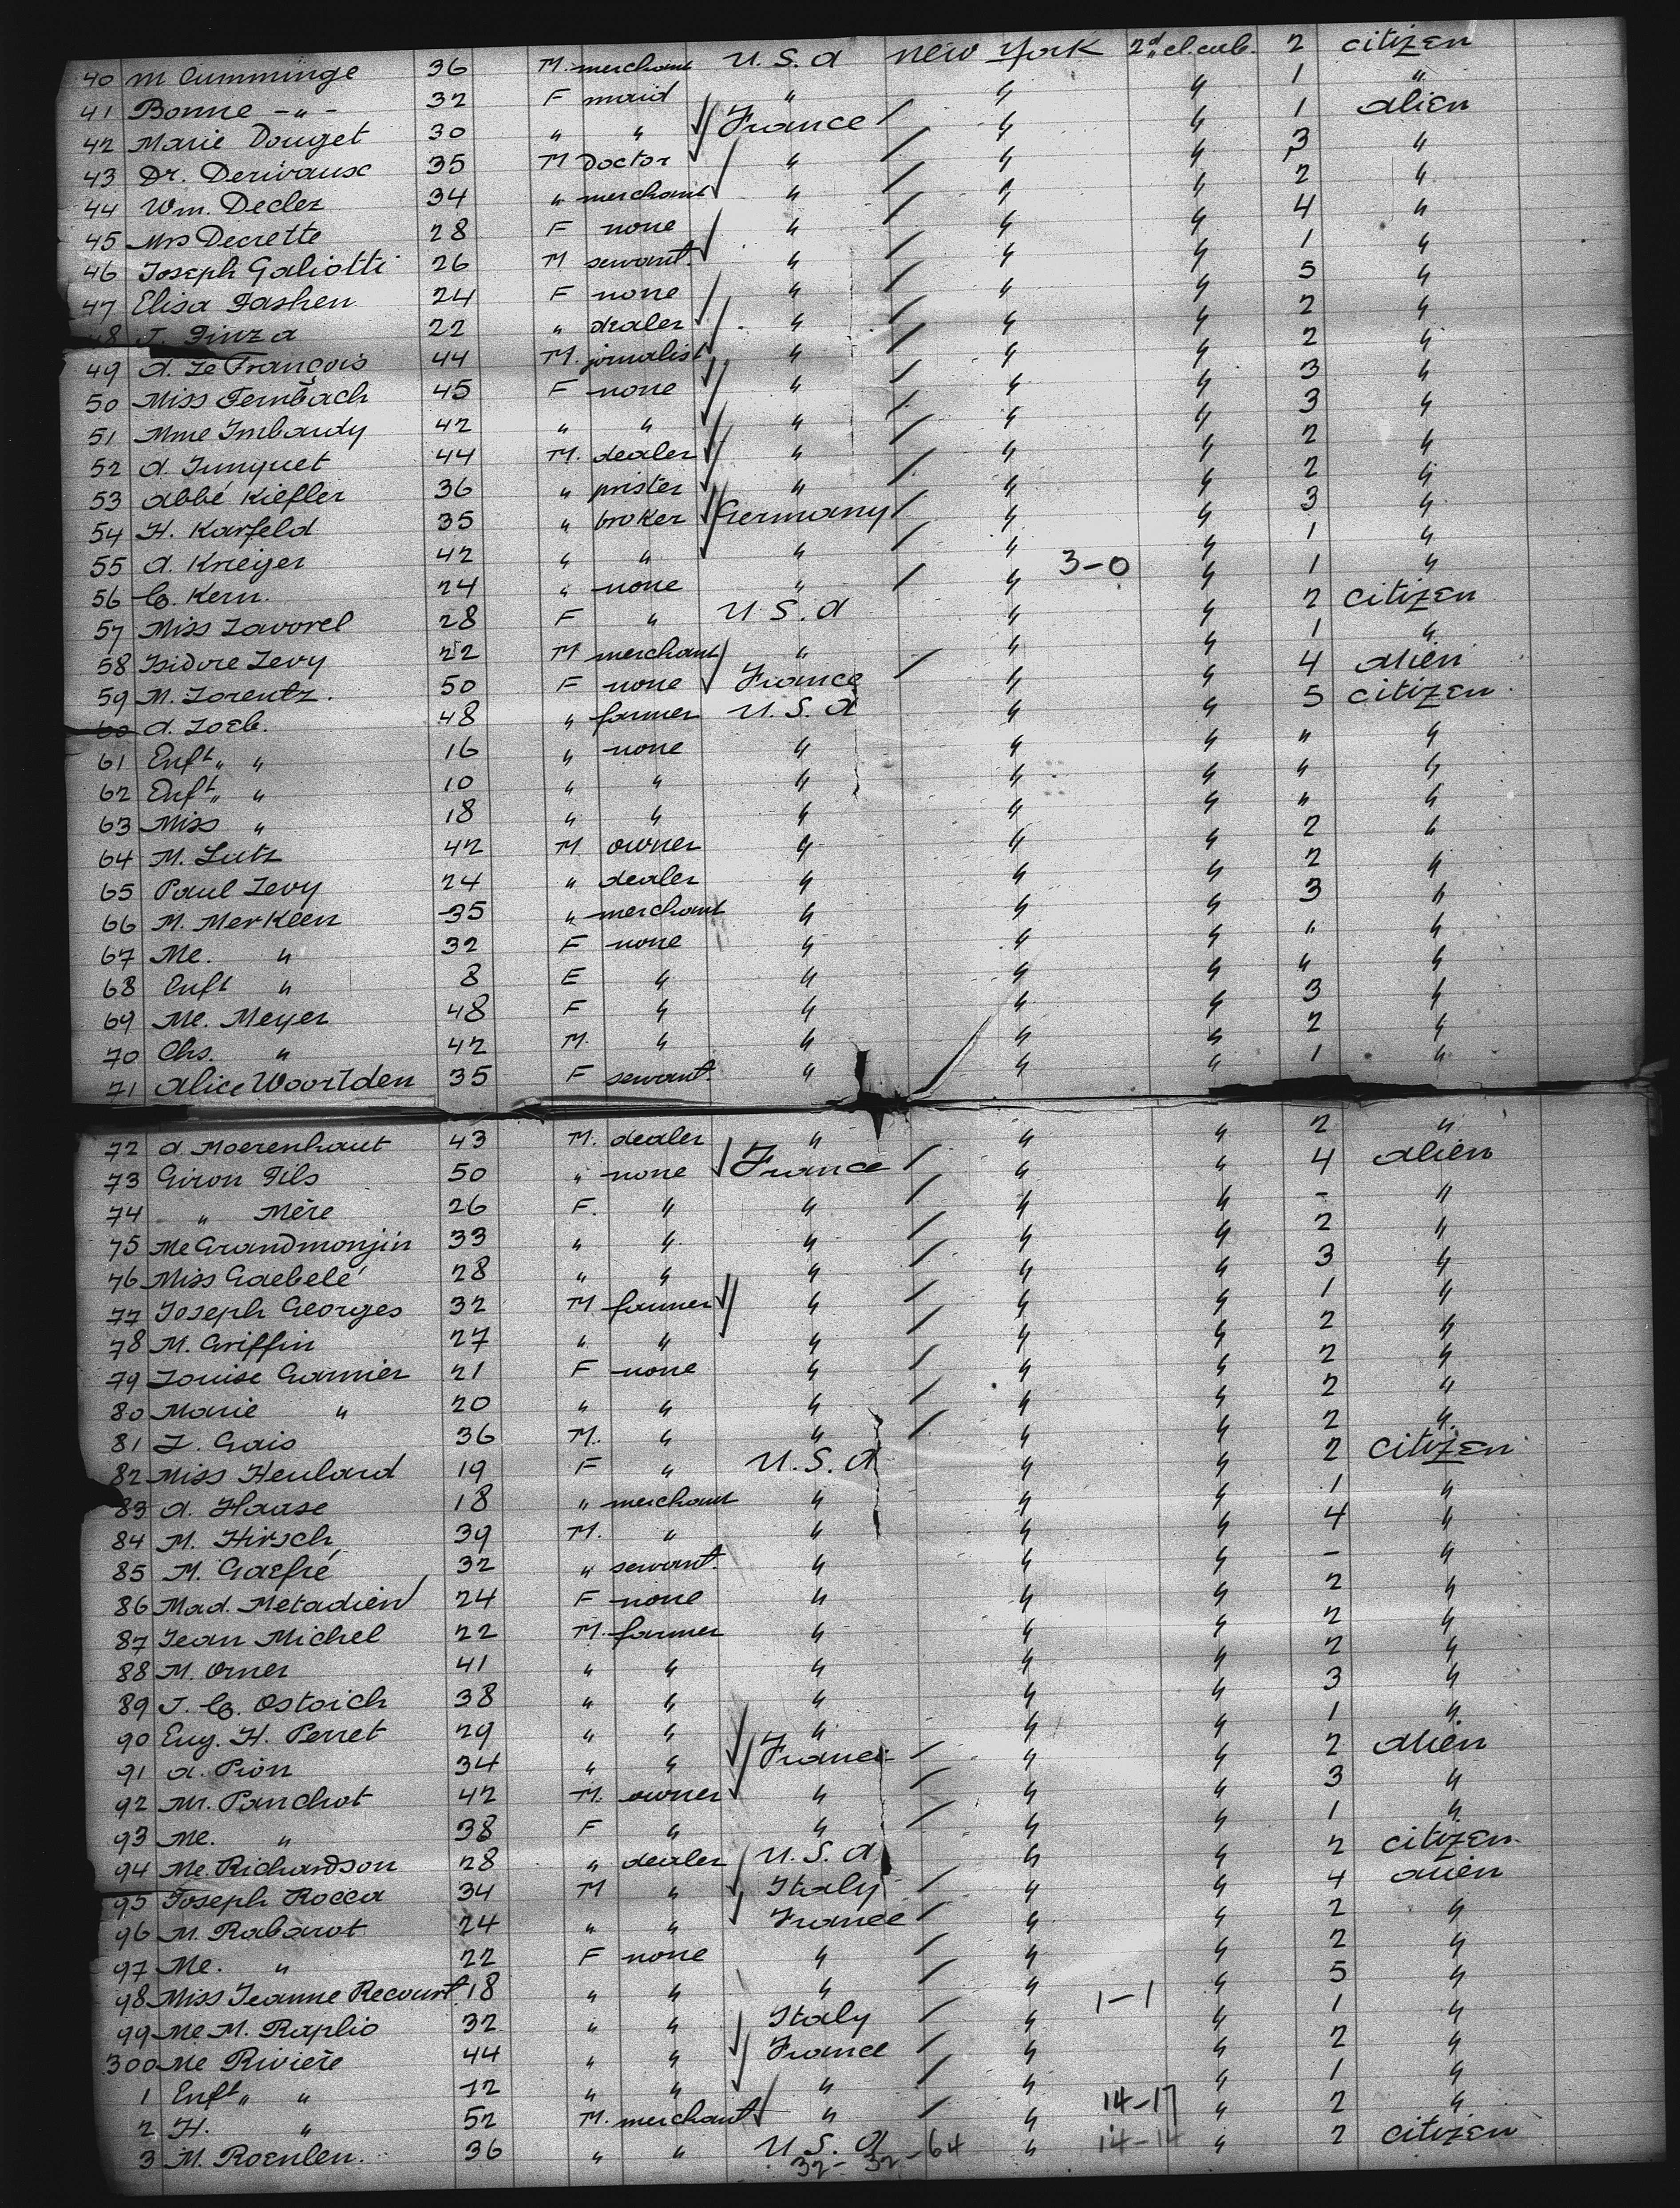 40 M Cumminge 36 M. merchant U.S.A New York 2d cl. cab. 2 citizen
41 Bonne -"- 32 F maid " " " 1 "
42 Marie Douget 30 " " France " " 1 alien
43 Dr. Derivaux 35 M Doctor " " " 3 "
44 Wm. Declez 34 " merchant " " " 2 "
45 Mrs Decrette 28 F none " " " 4 "
46 Joseph Galiotti 26 M servant. " " " 1 "
47 Elisa Fashen 24 F none " " " 5 "
48 J. Finza 22 " dealer " " " 2 "
49 A. Le François 44 M. jornalist " " " 2 "
50 Miss Fernbach 45 F none " " " 3 "
51 Mme Imbardy 42 " " " " " 3 "
52 A. Junquet 44 M. dealer " " " 2 "
53 Abbé Kiefler 36 " prister " " " 2 "
54 H. Karfeld 35 " broker Germany " " 3 "
55 A. Krieger 42 " " " " " 1 "
56 C. Kern. 24 " none " " 3-0 " 1 "
57 Miss Lavorel 28 F " U.S.A " " 2 citizen
58 Isidore Levy 22 M merchant " " " 1 "
59 M. Lorentz. 50 F none France " " 4 alien
60 A. Loeb. 48 " farmer U.S.A " " 5 citizen
61 Enft " " 16 " none " " " " "
62 Enft " " 10 " " " " " " "
63 Miss " 18 " " " " " " "
64 M. Lutz 42 M owner " " " 2 "
65 Paul Levy 24 " dealer " " " 2 "
66 M. Merkleen 35 " merchant " " " 3 "
67 Me. " 32 F none " " " " "
68 Enft " 8 E " " " " " "
69 Me. Meyer 48 F " " " " 3 "
70 Chs. " 42 M. " " " " 2 "
71 Alice Woortden 35 F servant. " " " 1 "
72 A. Moerenhaut 43 M. dealer " " " 2 "
73 Giron Fils 50 " none France " " 4 alien
74 " Mère 26 F. " " " " - "
75 Me Grandmonjin 33 " " " " " 2 "
76 Miss Gaebelé 28 " " " " " 3 "
77 Joseph Georges 32 M farmer " " " 1 "
78 M. Griffin 27 " " " " " 2 "
79 Louise Garnier 21 F none " " " 2 "
80 Marie " 20 " " " " " 2 "
81 L. Gais 36 M. " " " " 2 "
82 Miss Heulard 19 F " U.S.A " " 2 citizen
83 A. Haase 18 " merchant " " " 1 "
84 M. Hirsch 39 M. " " " " 4 "
85 M. Gaefré 32 " servant. " " " - "
86 Mad. Metadieu 24 F none " " " 2 "
87 Jean Michel 22 M. farmer " " " 2 "
88 M. Orner 41 " " " " " 2 "
89 J. C. Ostoich 38 " " " " " 3 "
90 Eug. H. Perret 29 " " " " " 1 "
91 A. Pion 34 " " France " " 2 alien
92 Mr. Panchot 42 M. owner " " " 3 "
93 Me. " 38 F " " " " 1 "
94 Me. Richardson 28 " dealer U.S.A " " 2 citizen
95 Joseph Rocca 34 M " Italy " " 4 alien
96 M. Rabarot 24 " " France " " 2 "
97 Me. " 22 F none " " " 2 "
98 Miss Jeanne Recourt 18 " " " " 1-1 " 5 "
99 Me M. Raplio 32 " " Italy " " 1 "
300 Me Riviere 44 " " France " " 2 "
1 Enft " " 12 " " " " " 1 "
2 H. " 52 M. merchant " " 14-17 " 2 "
3 M. Roenlen. 36 " " U.S.A " 14-14 " 2 citizen
32-32-64